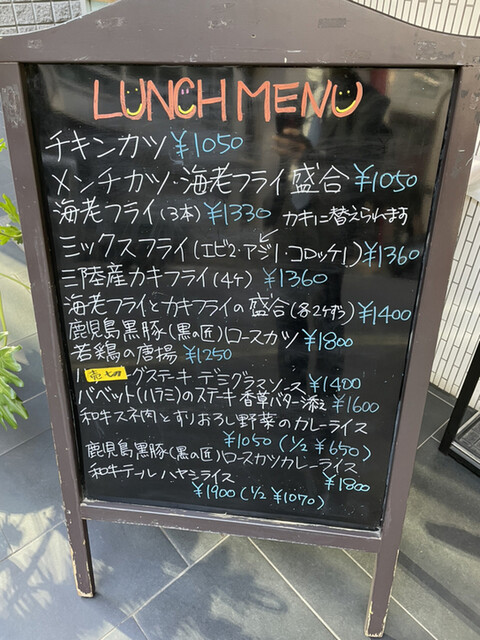 LUNCH MENU
チキンカツ ¥1050
メンチカツ・海老フライ盛合 ¥1050
海老フライ(3本) ¥1330 カキに替えられます
ミックスフライ(エビ2・アジ1・コロッケ1) ¥1360
三陸産カキフライ(4ケ) ¥1360
海老フライとカキフライの盛合(各2ケずつ) ¥1400
鹿児島黒豚(黒の匠)ロースカツ ¥1800
若鶏の唐揚 ¥1250
グステーキ デミグラスソース ¥1400
バベット(ハラミ)のステーキ 香草バター添え ¥1600
和牛スネ肉とすりおろし野菜のカレーライス
¥1050 (1/2 ¥650)
鹿児島黒豚(黒の匠)ロースカツカレーライス
¥1800
和牛テール ハヤシライス
¥1900 (1/2 ¥1070)